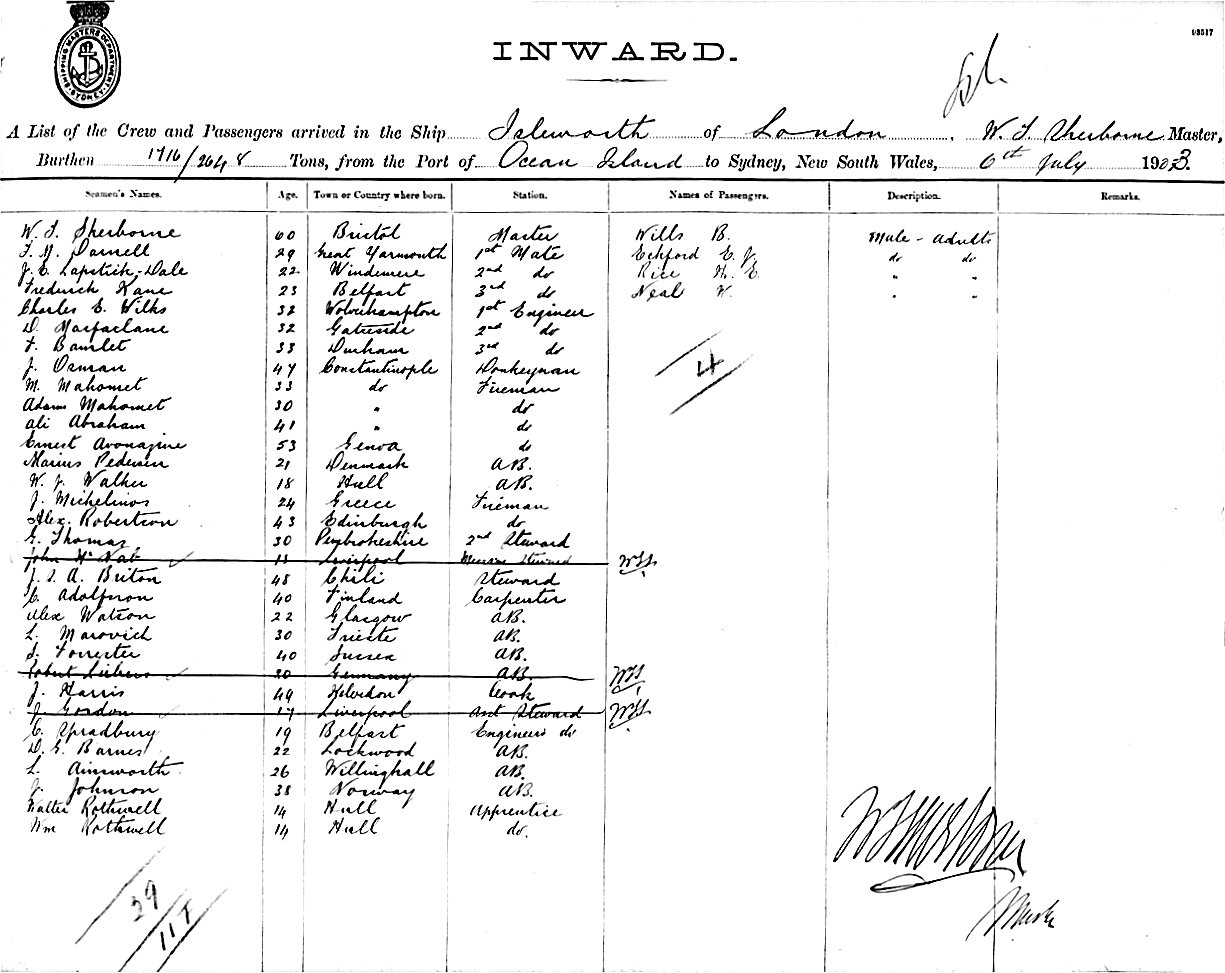 SHIPPING MASTERS DEPARTMENT SYDNEY
03517
INWARD.
A List of the Crew and Passengers arrived in the Ship Isleworth of London, W. F. Sherborne Master,
Burthen 1716/2648 Tons, from the Port of Ocean Island to Sydney, New South Wales, 6th July 1903.
Seamen's Names. Age. Town or Country where born. Station. Names of Passengers. Description. Remarks.
W. F. Sherborne 60 Bristol Master Wills B. Male - Adults
Darnell 29 Great Yarmouth 1st Mate Eckford E. J. do do
J. E. Lapstick-Dale 22 Windemere 2nd do Rice H. E. " "
Frederick Kane 23 Belfast 3rd do Neal W. " "
Charles E. Wilks 32 Wolverhampton 1st Engineer
D. Macfaclane 32 Gateside 2nd do
F. Bamlet 33 Durham 3rd do
J. Osman 47 Constantinople Donkeyman
4
M. Mahomet 33 do Fireman
Adam Mahomet 30 " do
Ali Abraham 41 " do
Ernest 53 Genoa do
Marius Pedersen 21 Denmark A.B.
W. J. Walker 18 Hull A.B.
J. Michelinos 24 Greece Fireman
Alex. Robertson 43 Edinburgh do
G. Thomas 30 Pembrokeshire 2nd Steward
John McNab Liverpool Steward
J. S. A. Briton 48 Chili Steward
C. Adolfson 40 Finland Carpenter
Alex Watson 22 Glasgow A.B.
L. Marovich 30 Trieste A.B.
S. Forrester 40 Sussex A.B.
Robert Germany A.B.
J. Harris 49 Kelvedon Cook
J. Gordon 17 Liverpool Asst Steward
C. Spradbury 19 Belfast Engineers do
D. G. Barnes 22 Lockwood A.B.
L. Ainsworth 26 Willinghall A.B.
J. Johnson 38 Norway A.B.
Walter Rothwell 14 Hull Apprentice
Wm Rothwell 14 Hull do.
29